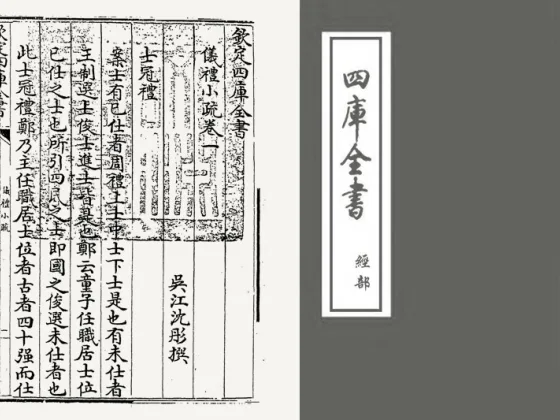 欽定四庫全書
儀禮小疏卷一
吳江沈彤撰
士冠禮
案士有已仕者周禮上士中士下士是也有未仕者
王制選士俊士進士皆是也鄭云童子任職居士位
已仕之士也所引四民之士即國之俊選未仕者也
此士冠禮鄭乃主任職居士位者古者四十强而仕
欽定四庫全書
儀禮小疏
四庫全書
經部